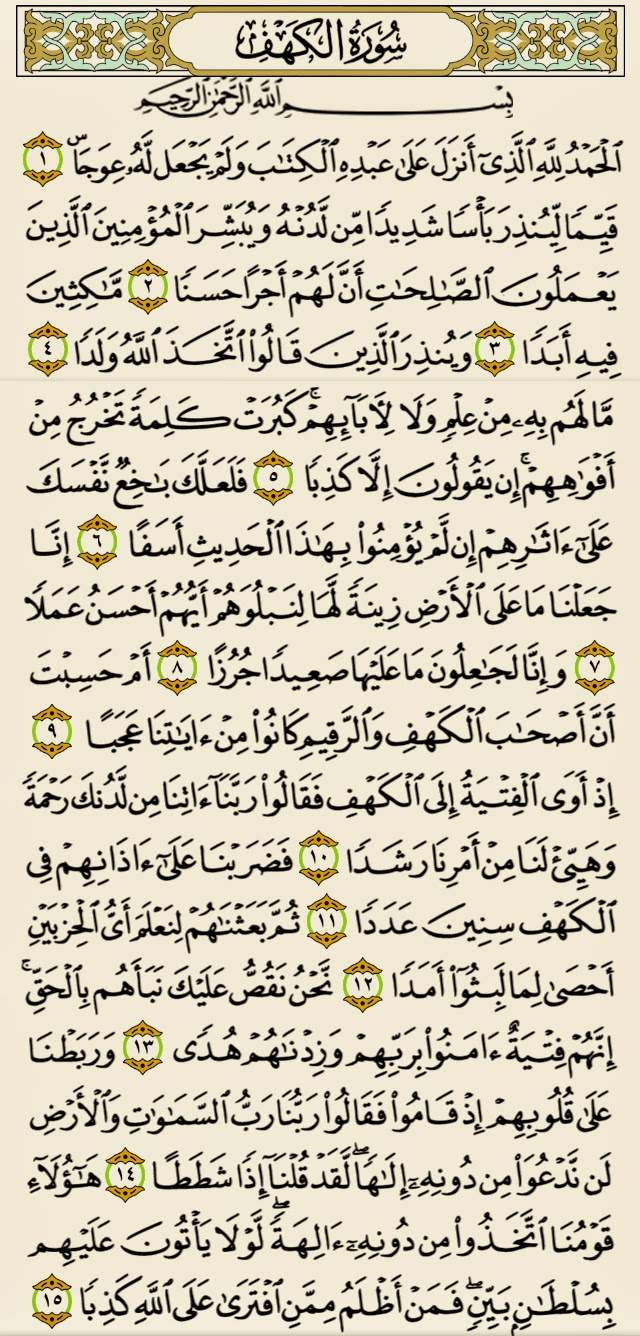 سُورَةُ الكَهْفِ
بِسْمِ ٱللَّهِ ٱلرَّحْمَٰنِ ٱلرَّحِيمِ
ٱلْحَمْدُ لِلَّهِ ٱلَّذِىٓ أَنزَلَ عَلَىٰ عَبْدِهِ ٱلْكِتَٰبَ وَلَمْ يَجْعَل لَّهُۥ عِوَجَاۜ ١
قَيِّمًا لِّيُنذِرَ بَأْسًا شَدِيدًا مِّن لَّدُنْهُ وَيُبَشِّرَ ٱلْمُؤْمِنِينَ ٱلَّذِينَ
يَعْمَلُونَ ٱلصَّٰلِحَٰتِ أَنَّ لَهُمْ أَجْرًا حَسَنًا ٢ مَّٰكِثِينَ
فِيهِ أَبَدًا ٣ وَيُنذِرَ ٱلَّذِينَ قَالُوا۟ ٱتَّخَذَ ٱللَّهُ وَلَدًا ٤
مَّا لَهُم بِهِۦ مِنْ عِلْمٍ وَلَا لِأَبَآئِهِمْ ۚ كَبُرَتْ كَلِمَةً تَخْرُجُ مِنْ
أَفْوَٰهِهِمْ ۚ إِن يَقُولُونَ إِلَّا كَذِبًا ٥ فَلَعَلَّكَ بَٰخِعٌ نَّفْسَكَ
عَلَىٰٓ ءَاثَٰرِهِمْ إِن لَّمْ يُؤْمِنُوا۟ بِهَٰذَا ٱلْحَدِيثِ أَسَفًا ٦ إِنَّا
جَعَلْنَا مَا عَلَى ٱلْأَرْضِ زِينَةً لَّهَا لِنَبْلُوَهُمْ أَيُّهُمْ أَحْسَنُ عَمَلًا
٧ وَإِنَّا لَجَٰعِلُونَ مَا عَلَيْهَا صَعِيدًا جُرُزًا ٨ أَمْ حَسِبْتَ
أَنَّ أَصْحَٰبَ ٱلْكَهْفِ وَٱلرَّقِيمِ كَانُوا۟ مِنْ ءَايَٰتِنَا عَجَبًا ٩
إِذْ أَوَى ٱلْفِتْيَةُ إِلَى ٱلْكَهْفِ فَقَالُوا۟ رَبَّنَآ ءَاتِنَا مِن لَّدُنكَ رَحْمَةً
وَهَيِّئْ لَنَا مِنْ أَمْرِنَا رَشَدًا ١٠ فَضَرَبْنَا عَلَىٰٓ ءَاذَانِهِمْ فِى
ٱلْكَهْفِ سِنِينَ عَدَدًا ١١ ثُمَّ بَعَثْنَٰهُمْ لِنَعْلَمَ أَىُّ ٱلْحِزْبَيْنِ
أَحْصَىٰ لِمَا لَبِثُوٓا۟ أَمَدًا ١٢ نَّحْنُ نَقُصُّ عَلَيْكَ نَبَأَهُم بِٱلْحَقِّ ۚ
إِنَّهُمْ فِتْيَةٌ ءَامَنُوا۟ بِرَبِّهِمْ وَزِدْنَٰهُمْ هُدًى ١٣ وَرَبَطْنَا
عَلَىٰ قُلُوبِهِمْ إِذْ قَامُوا۟ فَقَالُوا۟ رَبُّنَا رَبُّ ٱلسَّمَٰوَٰتِ وَٱلْأَرْضِ
لَن نَّدْعُوَا۟ مِن دُونِهِۦٓ إِلَٰهًا ۖ لَّقَدْ قُلْنَآ إِذًا شَطَطًا ١٤ هَٰٓؤُلَآءِ
قَوْمُنَا ٱتَّخَذُوا۟ مِن دُونِهِۦٓ ءَالِهَةً ۖ لَّوْلَا يَأْتُونَ عَلَيْهِم
بِسُلْطَٰنٍۭ بَيِّنٍ ۖ فَمَنْ أَظْلَمُ مِمَّنِ ٱفْتَرَىٰ عَلَى ٱللَّهِ كَذِبًا ١٥